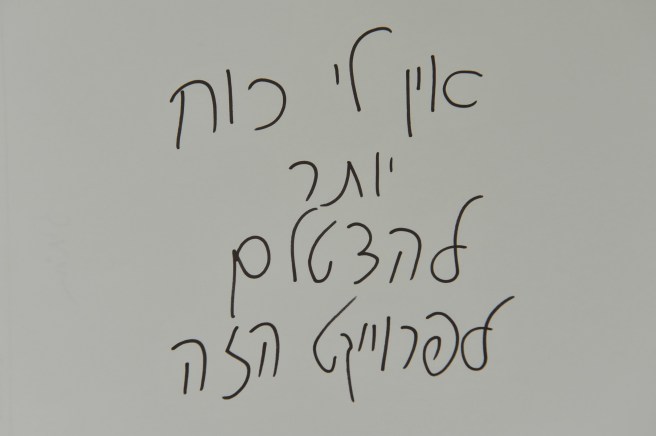 אין לי כוח
יותר
להצטלם
לפרוייקט הזה